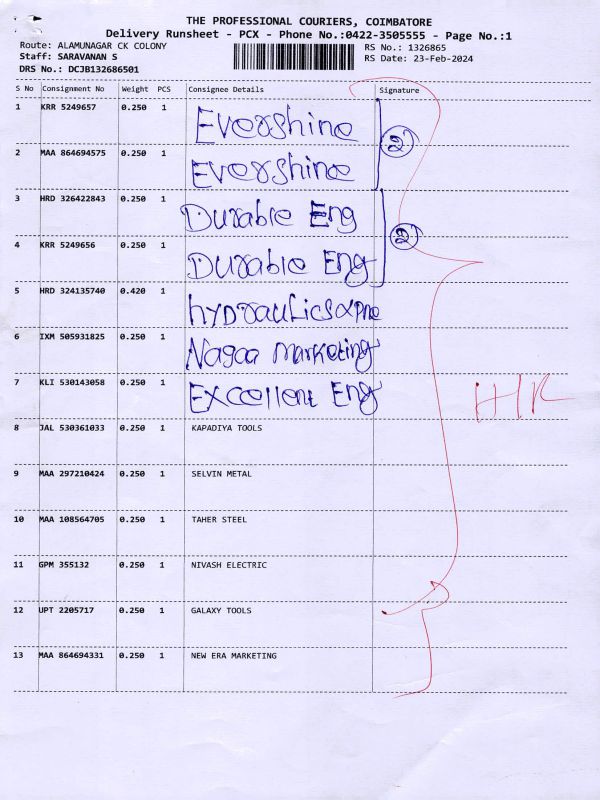 THE PROFESSIONAL COURIERS, COIMBATORE
Delivery Runsheet - PCX - Phone No.:0422-3505555 - Page No.:1
Route: ALAMUNAGAR CK COLONY RS No.: 1326865
Staff: SARAVANAN S RS Date: 23-Feb-2024
DRS No.: DCJB132686501
S No Consignment No Weight PCS Consignee Details Signature
1 KRR 5249657 0.250 1 Evershine
2
2 MAA 864694575 0.250 1 Evershine
3 HRD 326422843 0.250 1 Durable Eng
2
4 KRR 5249656 0.250 1 Durable Eng
5 HRD 324135740 0.420 1 hydraulics & pne
6 IXM 505931825 0.250 1 Nagaa marketing
7 KLI 530143058 0.250 1 Excellent Eng
8 JAL 530361033 0.250 1 KAPADIYA TOOLS
9 MAA 297210424 0.250 1 SELVIN METAL
10 MAA 108564705 0.250 1 TAHER STEEL
11 GPM 355132 0.250 1 NIVASH ELECTRIC
12 UPT 2205717 0.250 1 GALAXY TOOLS
13 MAA 864694331 0.250 1 NEW ERA MARKETING